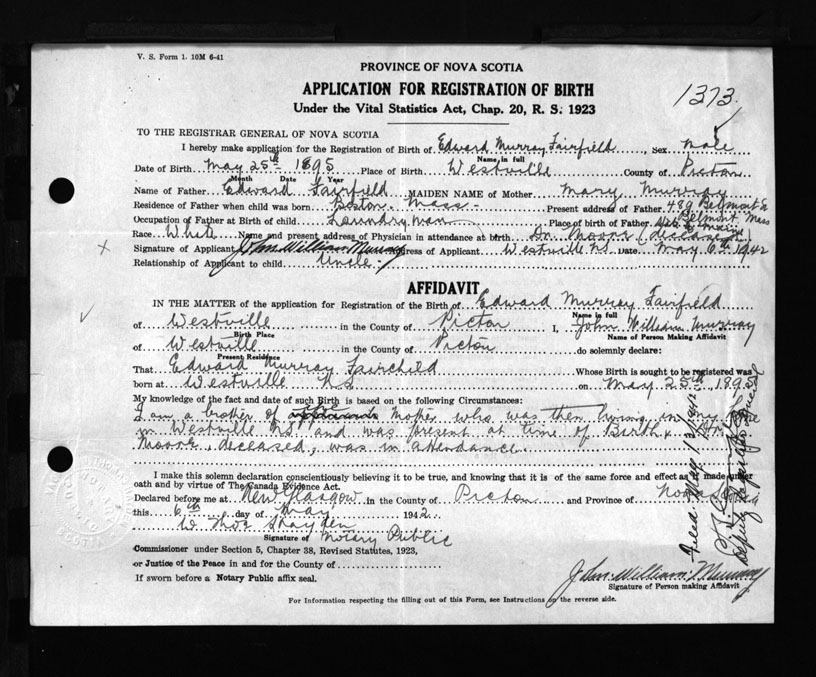 V. S. Form 1. 10M 6-41
PROVINCE OF NOVA SCOTIA
APPLICATION FOR REGISTRATION OF BIRTH
1373
Under the Vital Statistics Act, Chap. 20, R. S. 1923
TO THE REGISTRAR GENERAL OF NOVA SCOTIA
I hereby make application for the Registration of Birth of Edward Murray Fairfield, Sex male
Name in full
Date of Birth May 25th 1895 Place of Birth Westville County of Pictou
Month Date Year
Name of Father Edward Fairfield MAIDEN NAME of Mother Mary Murray
Residence of Father when child was born Boston. Mass Present address of Father 489 Belmont St
Belmont Mass
Occupation of Father at Birth of child Laundry man Place of birth of Father
Race White Name and present address of Physician in attendance at birth Dr. Moore (Deceased)
Signature of Applicant John William Murray Address of Applicant Westville NS Date May 6th 1942
Relationship of Applicant to child Uncle
AFFIDAVIT
IN THE MATTER of the application for Registration of the Birth of Edward Murray Fairfield
Name in full
of Westville in the County of Pictou I, John William Murray
Birth Place
Name of Person Making Affidavit
of Westville in the County of Pictou do solemnly declare:
Present Residence
That Edward Murray Fairchild Whose Birth is sought to be registered was
born at Westville NS on May 25th 189
My knowledge of the fact and date of such Birth is based on the following Circumstances:
I am a brother of mother who was then living in
in Westville NS and was present at time of Birth.
Moore, deceased, was in attendance.
I make this solemn declaration conscientiously believing it to be true, and knowing that it is of the same force and effect as if made under
oath and by virtue of The Canada Evidence Act.
Declared before me at New Glasgow in the County of Pictou and Province of Nova Scotia
this 6th day of May 1942.
W. Thos
Signature of Notary Public
Commissioner under Section 5, Chapter 38, Revised Statutes, 1923,
or Justice of the Peace in and for the County of
If sworn before a Notary Public affix seal.
John William Murray
Signature of Person making Affidavit
For Information respecting the filling out of this Form, see Instructions on the reverse side.
Filed May 13/1942
Deputy Registrar General